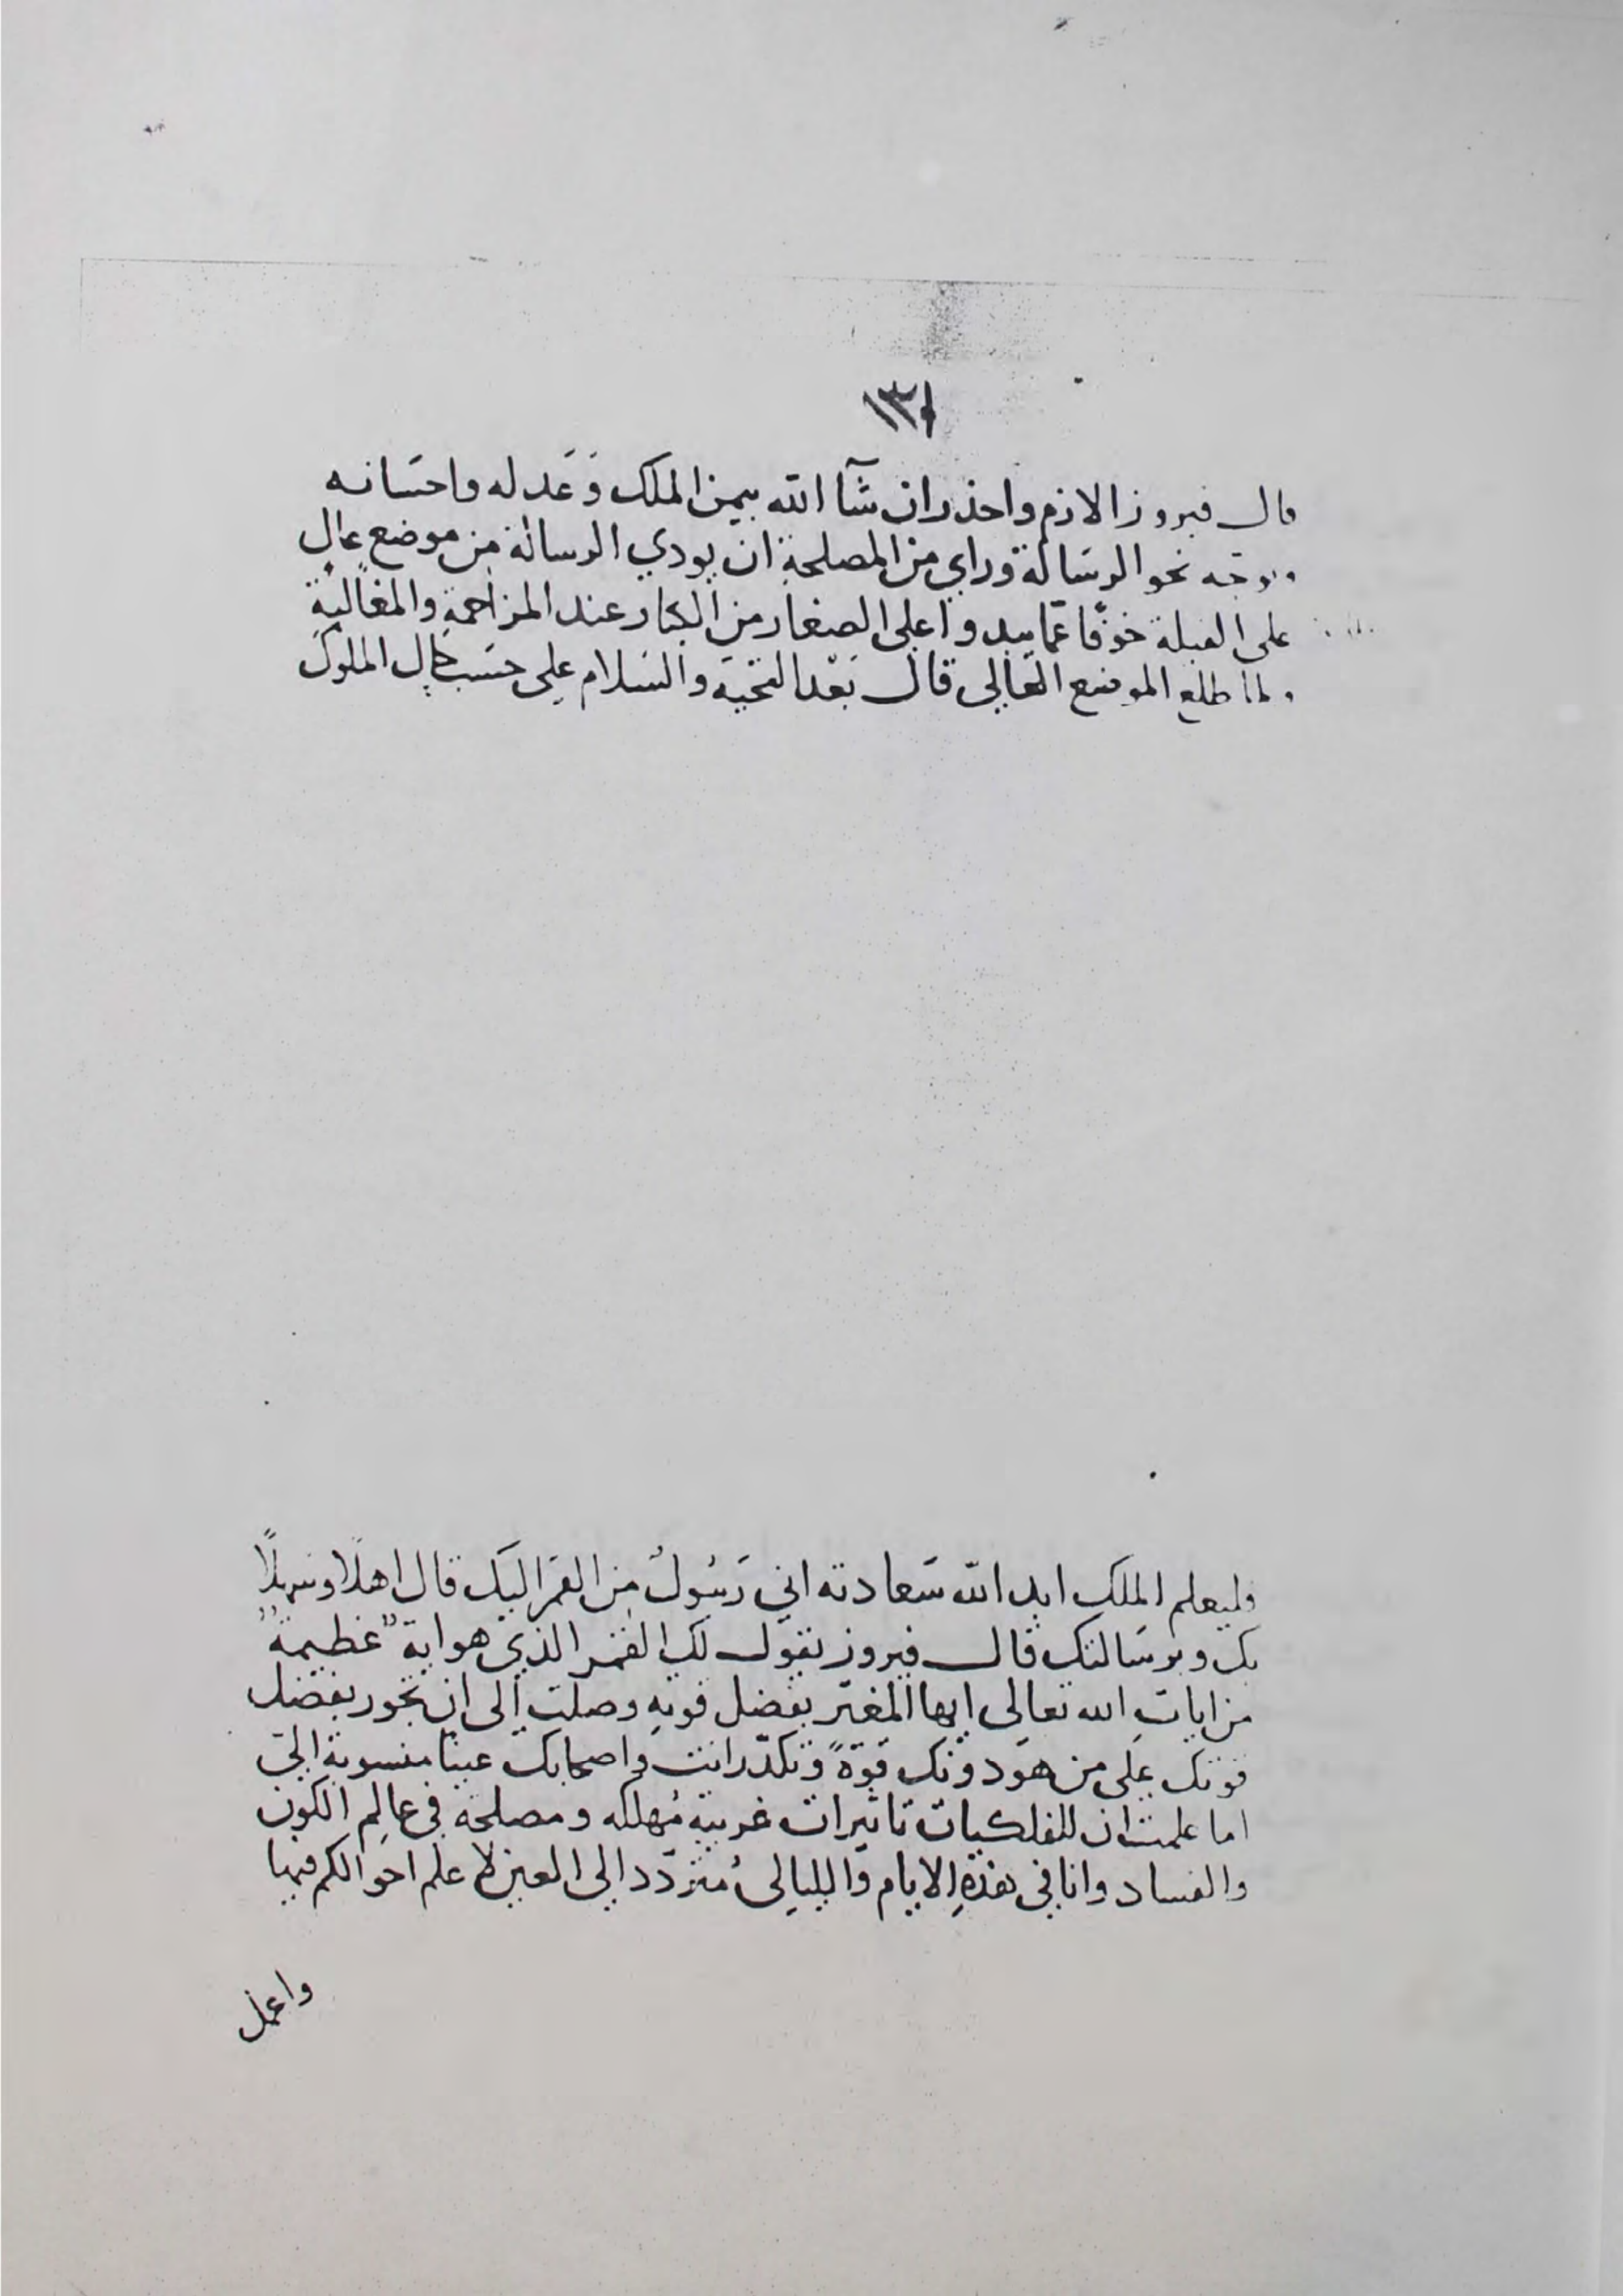 ١٣١
قال فيروز الازم واحذر ان شآ الله بيمن الملك وَعَدله واحسَانه
وتوجّه نحو الرسَالة وراي من المصلحة ان يودي الرسالة من موضع عالٍ
على الفيلة خوفًا عمّا يبدوا على الصغار من الكبار عند المزاحمةِ والمغالبةِ
ولما طلع الموضع العَالي قال بَعْد التحيّة والسَلام على حسَب حَال الملوك
وليعلم الملك ابد الله سَعادته اني رَسُولٌ من القمَر اليَك قال اهلًا وسهلًا
بك وبرسَالتك قال فيروز يقول لك القمر الذي هو اية عَظيمة
من اياتِ الله تعالى ايها المغترّ بفضل قوتهِ وصلت الى ان تجور بفضل
قوتك عَلى من هو دونك قوّةً وتكدّر انت واصحابك عَينًا منسوبة اليّ
اما علمت ان للفلكيات تاثيرات غريبة مُهلكه ومصلحة في عالم الكون
والفساد وانا في هذهِ الايام والليالي مُتردّد الى العين لاعلم احوالكم فيها
واعمل